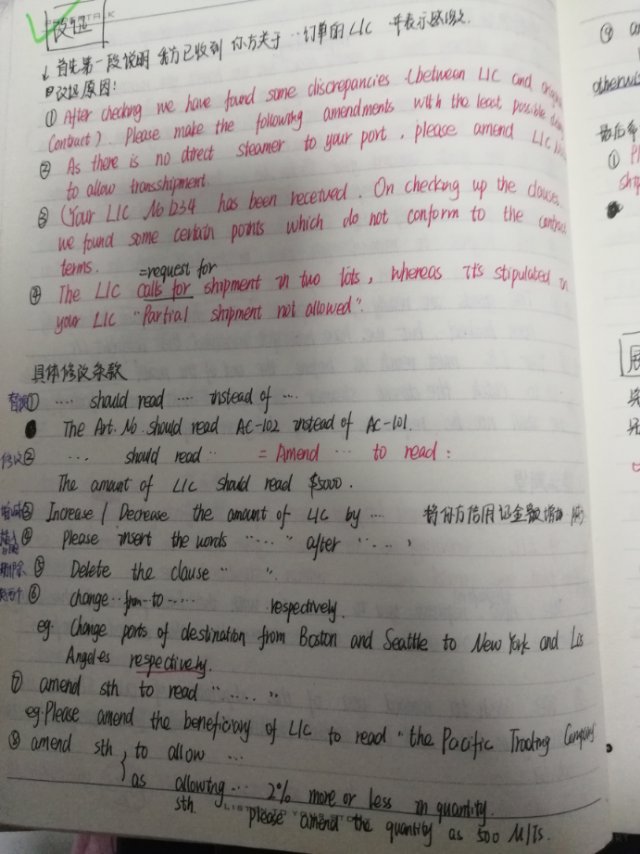 改证
↓ 首先第一段说明 我方已收到 你方关于…订单的L/C 并表示感激.
改证原因:
① After checking we have found some discrepancies (between L/C and
Contract). Please make the following amendments with the least possible
② As there is no direct steamer to your port, please amend L/C
to allow transshipment.
③ (Your L/C No 1234 has been received. On checking up the clauses,
we found some certain points which do not conform to the contract
terms.
=request for
④ The L/C calls for shipment in two lots, whereas it's stipulated in
your L/C "Partial shipment not allowed".
具体修改条款
① .... should read ... instead of ...
The Art. No. should read AC-102 instead of AC-101.
修改② ... should read .. = Amend ... to read :
The amount of L/C should read $5000.
③ Increase / Decrease the amount of L/C by ... 将你方信用证金额增加
④ Please insert the words "....." after "...,
删除⑤ Delete the clause " ".
⑥ change... from...to..... respectively.
eg. Change ports of destination from Boston and Seattle to New York and Los
Angeles respectively.
⑦ amend sth to read "....."
eg. Please amend the beneficiary of L/C to read "the Pacific Trading Company
⑧ amend sth to allow ...
as allowing... 2% more or less in quantity.
sth. please amend the quantity as 500 M/Ts.
⑨
otherwise
①